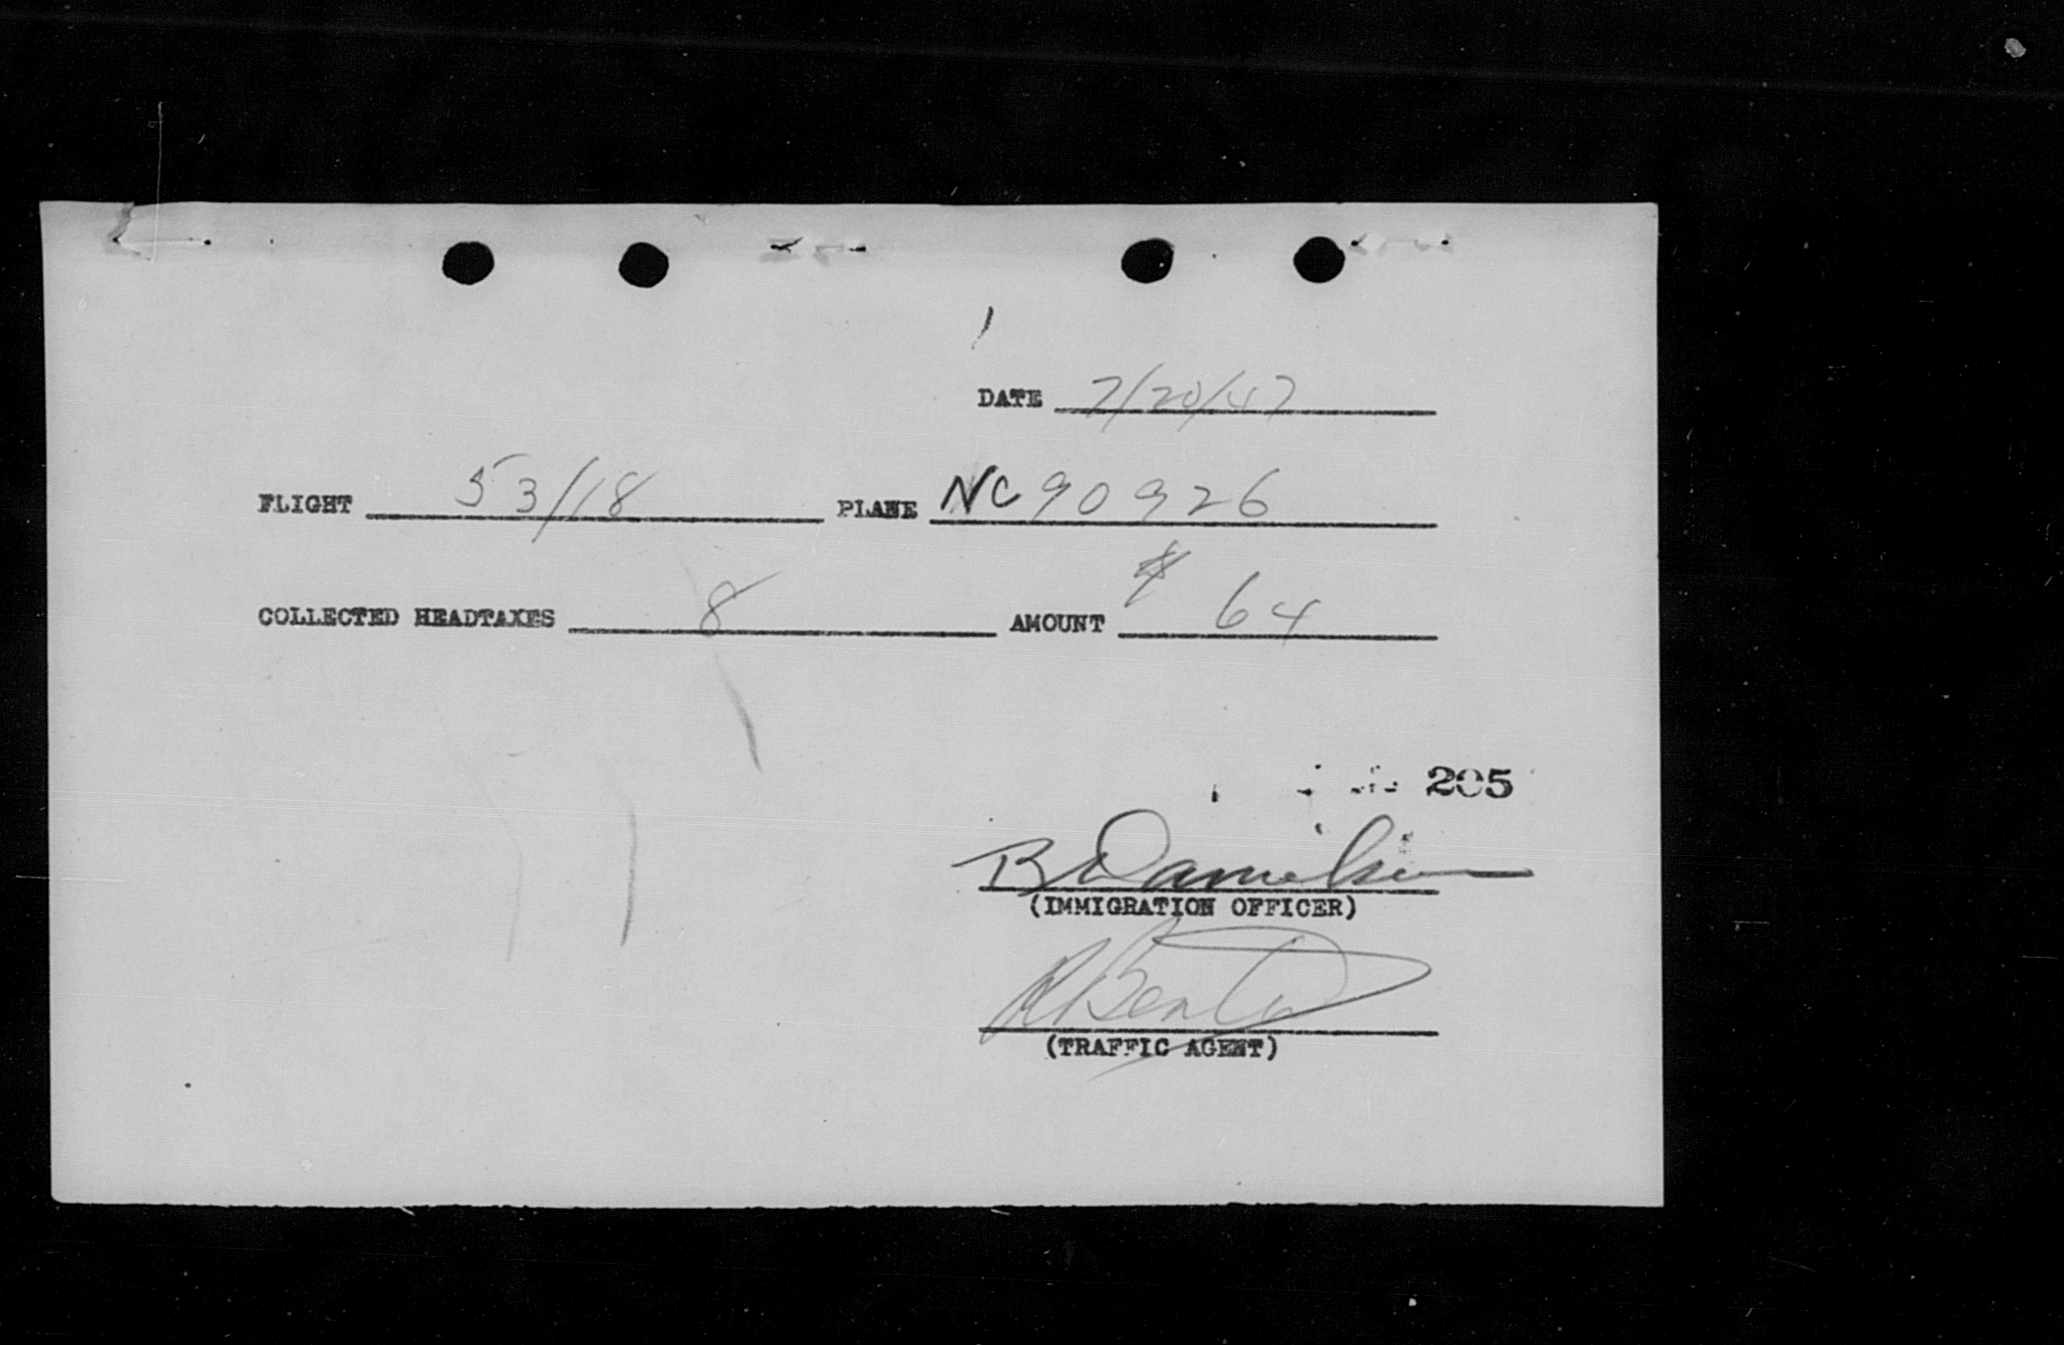 DATE 7/20/47
FLIGHT 53/18 PLANE NC90926
COLLECTED HEADTAXES 8 AMOUNT $ 64
205
B Danielson
(IMMIGRATION OFFICER)
(TRAFFIC AGENT)